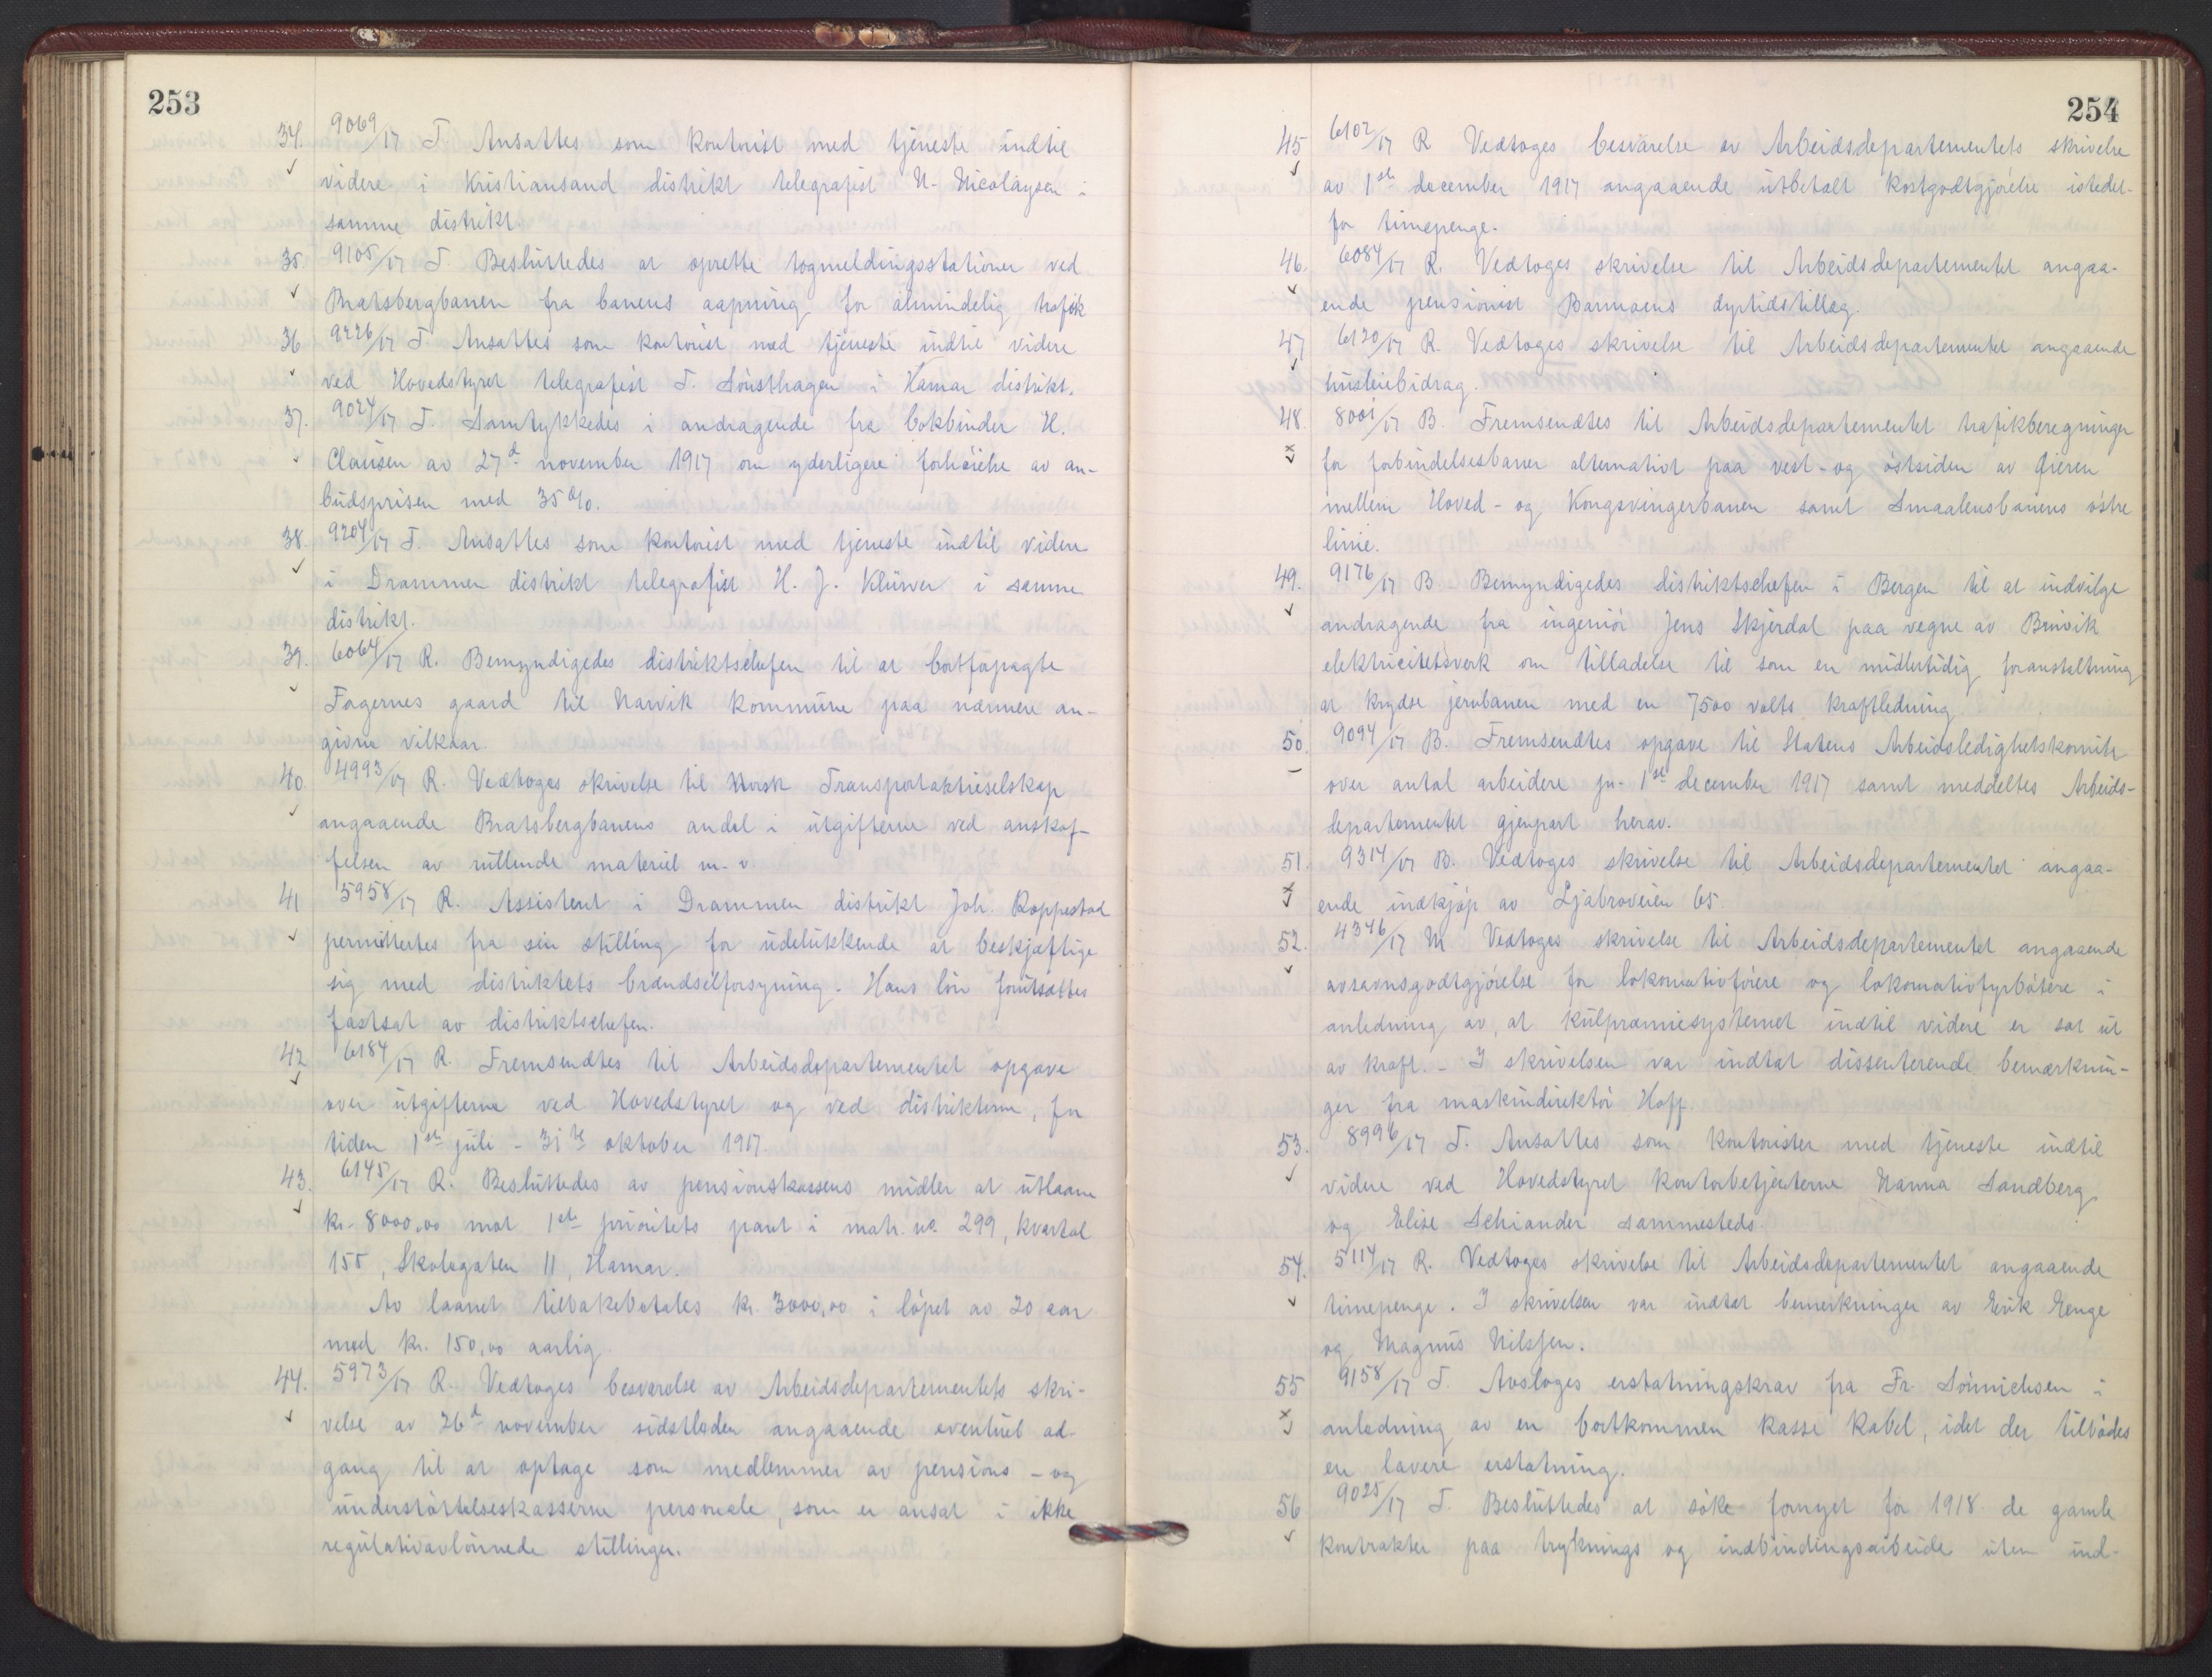 253
34. 9069/17 T. Ansattes som kontorist med tjeneste indtil
videre i Kristiansand distrikt telegrafist N. Nicolaysen i
samme distrikt.
35. 9105/17 T. Besluttedes at oprette togmeldingsstationer ved
Bratsbergbanen fra banens aapning for almindelig trafik
36 9226/17 T. Ansattes som kontorist med tjeneste indtil videre
ved Hovedstyret telegrafist T. Sønsthagen i Hamar distrikt.
37. 9024/17 T. Samtykkedes i andragende fra bokbinder H.
Clausen av 27d november 1917 om yderligere forhøielse av an-
budsprisen med 35%.
38. 9204/17 T. Ansattes som kontorist med tjeneste indtil videre
i Drammen distrikt telegrafist H. J. Klüwer i samme
distrikt.
39. 6064/17 R. Bemyndigedes distriktschefen til at bortforpagte
Fagernes gaard til Narvik kommune paa nærmere an-
givne vilkaar.
40. 4993/17 R. Vedtoges skrivelse til Norsk Transportaktieselskap
angaaende Bratsbergbanens andel i utgifterne ved anskaf-
felsen av rullende materiel m. v.
41 5958/17 R. Assistent i Drammen distrikt Joh. Roppestad
permittertes fra sin stilling for udelukkende at beskjæftige
sig med distriktets brændselforsyning. Hans løn forutsattes
fastsat av distriktschefen.
42 6184/17 R. Fremsendtes til Arbeidsdepartementet opgave
over utgifterne ved Hovedstyret og ved distrikterne, for
tiden 1ste juli - 31te oktober 1917.
43. 6145/17 R. Besluttedes av pensionskassens midler at utlaane
kr. 8000,00 mot 1ste prioritets pant i matr. no. 299, kvartal
155, Skolegaten 11, Hamar.
Av laanet tilbakebetales kr. 3000,00 i løpet av 20 aar
med kr. 150,00 aarlig.
44. 5973/17 R. Vedtoges besvarelse av Arbeidsdepartementets skri-
velse av 26d november sidstleden angaaende eventuel ad-
gang til at optage som medlemmer av pensions - og
understøttelseskasserne personale, som er ansat i ikke
regulativavlønnede stillinger.
254
45 6102/17 R Vedtoges besvarelse av Arbeidsdepartementets skrivelse
av 1ste december 1917 angaaende utbetalt kostgodtgjørelse istedet-
for timepenge.
46. 6084/17 R. Vedtoges skrivelse til Arbeidsdepartementet angaa-
ende pensionist Barmoens dyrtidstillæg.
47 6120/17 R. Vedtoges skrivelse til Arbeidsdepartementet angaaende
husleiebidrag.
48. 8001/17 B. Fremsendtes til Arbeidsdepartementet trafikberegninger
for forbindelsesbaner alternativt paa vest- og østsiden av Øieren
mellem Hoved - og Kongsvingerbanen samt Smaalensbanens østre
linie.
49. 9176/17 B. Bemyndigedes distriktschefen i Bergen til at indvilge
andragende fra ingeniør Jens Skjerdal paa vegne av Bruvik
elektricitetsverk om tilladelse til som en midlertidig foranstaltning
at krydse jernbanen med en 7500 volts kraftledning.
50. 9094/17 B. Fremsendtes opgave til Statens Arbeidsledighetskomite
over antal arbeidere pr. 1ste december 1917 samt meddeltes Arbeids-
departementet gjenpart herav.
51. 9314/17 B. Vedtoges skrivelse til Arbeidsdepartementet angaa-
ende indkjøp av Ljabroveien 65.
52. 4346/17 M Vedtoges skrivelse til Arbeidsdepartementet angaaende
avsavnsgodtgjørelse for lokomotivførere og lokomotivfyrbøtere i
anledning av, at kulpræmiesystemet indtil videre er sat ut
av kraft. - I skrivelsen var indtat dissenterende bemærknin-
ger fra maskindirektør Hoff.
53. 8996/17 T. Ansattes som kontorister med tjeneste indtil
videre ved Hovedstyret kontorbetjenterne Nanna Sandberg
og Elise Schiander sammesteds.
54. 5114/17 R. Vedtoges skrivelse til Arbeidsdepartementet angaaende
timepenge. I skrivelsen var indtat bemerkninger av Erik Enge
og Magnus Nilssen.
55 9158/17 T. Avsloges erstatningskrav fra Fr. Sønnichsen i
anledning av en bortkommen kasse kabel, idet der tilbødes
en lavere erstatning.
56 9025/17 T. Besluttedes at søke fornyet for 1918 de gamle
kontrakter paa tryknings og indbindingsarbeide uten ind-